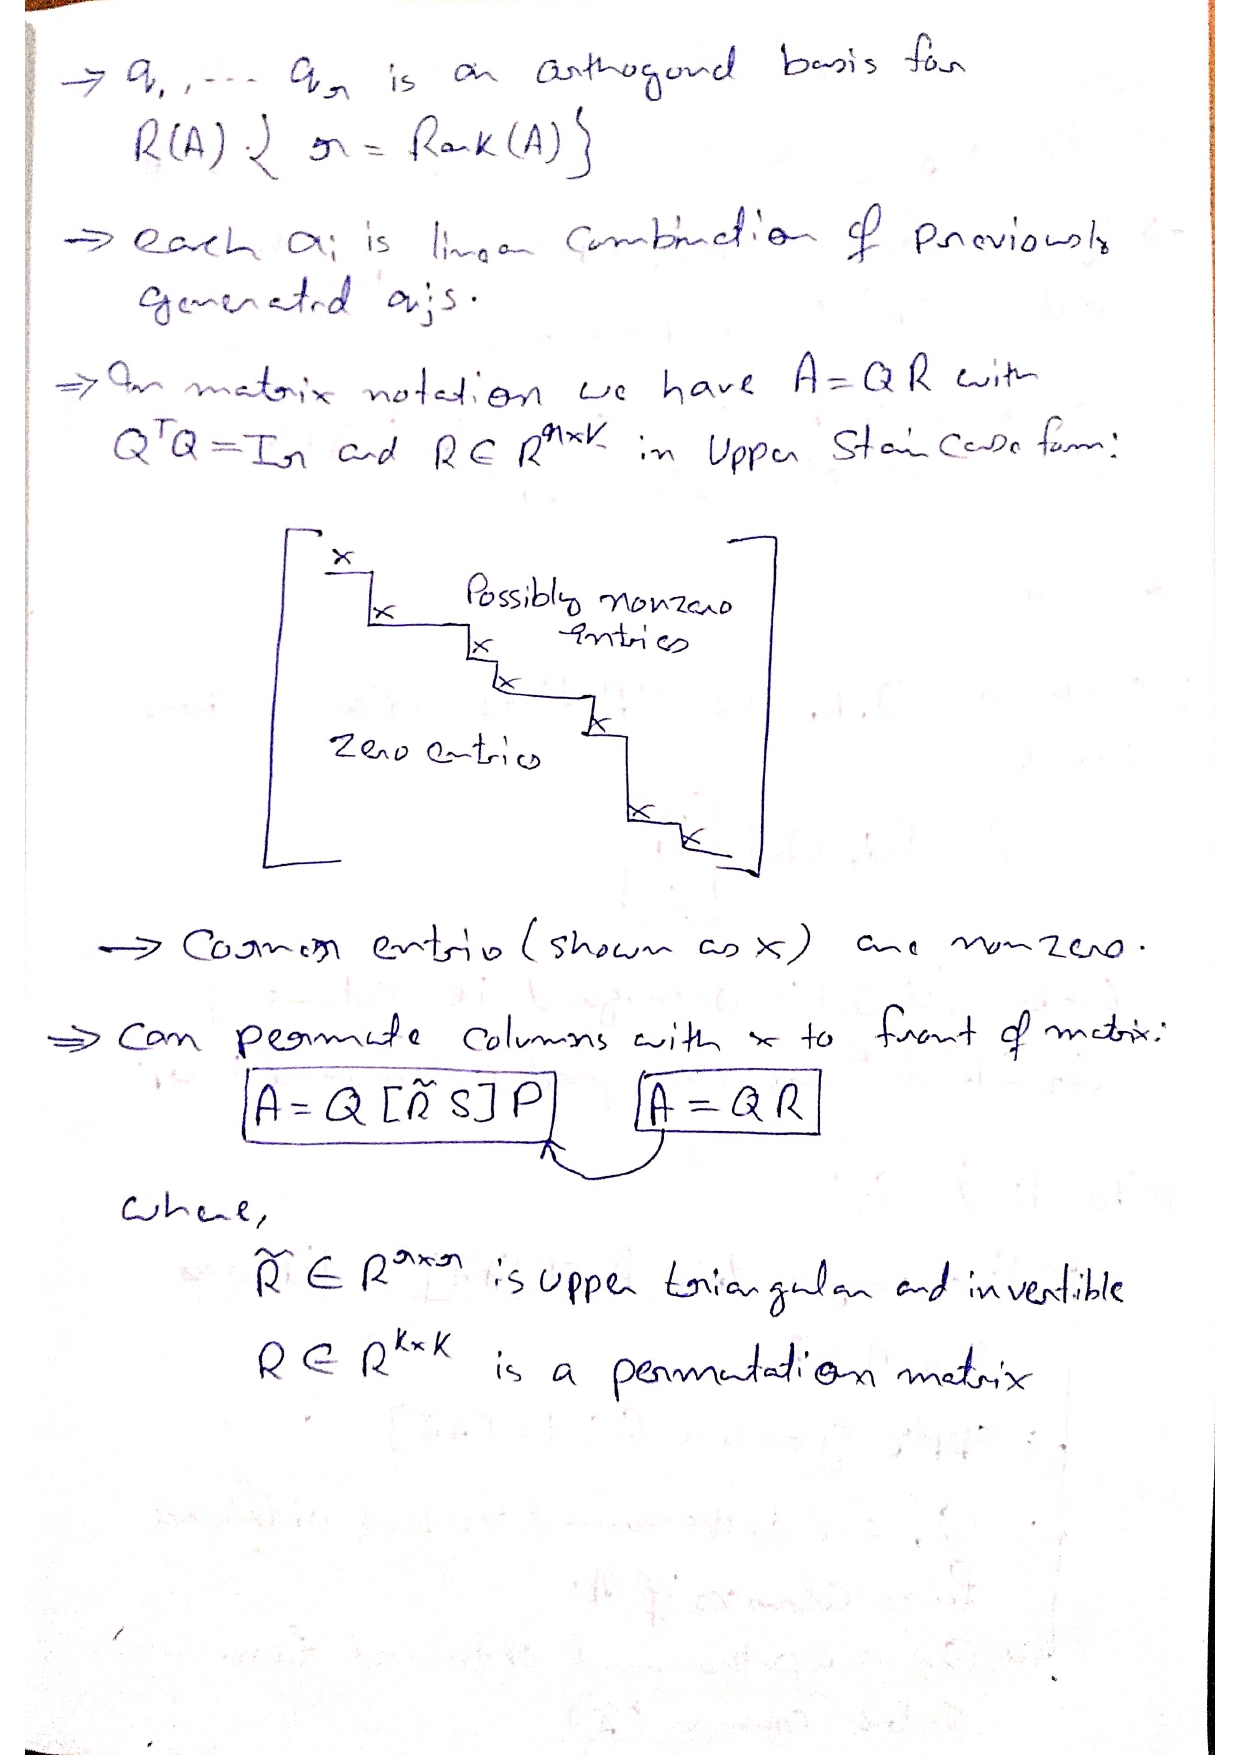 → q₁, ... qᵣ is an orthogonal basis for
R(A) { r = Rank(A)}
→ each aᵢ is linear Combination of previously
generated qⱼs.
⇒ In matrix notation we have A = QR with
QᵀQ = Iᵣ and R ∈ Rʳˣᴷ in Upper Stair Case form:
x
x Possibly nonzero
entries
x
x
x
Zero entries
x
x
→ Corner entries (shown as x) are nonzero.
⇒ Can permute columns with x to front of matrix:
A = Q [R̃ S] P A = QR
where,
R̃ ∈ Rʳˣʳ is upper triangular and invertible
R ∈ Rᴷˣᴷ is a permutation matrix